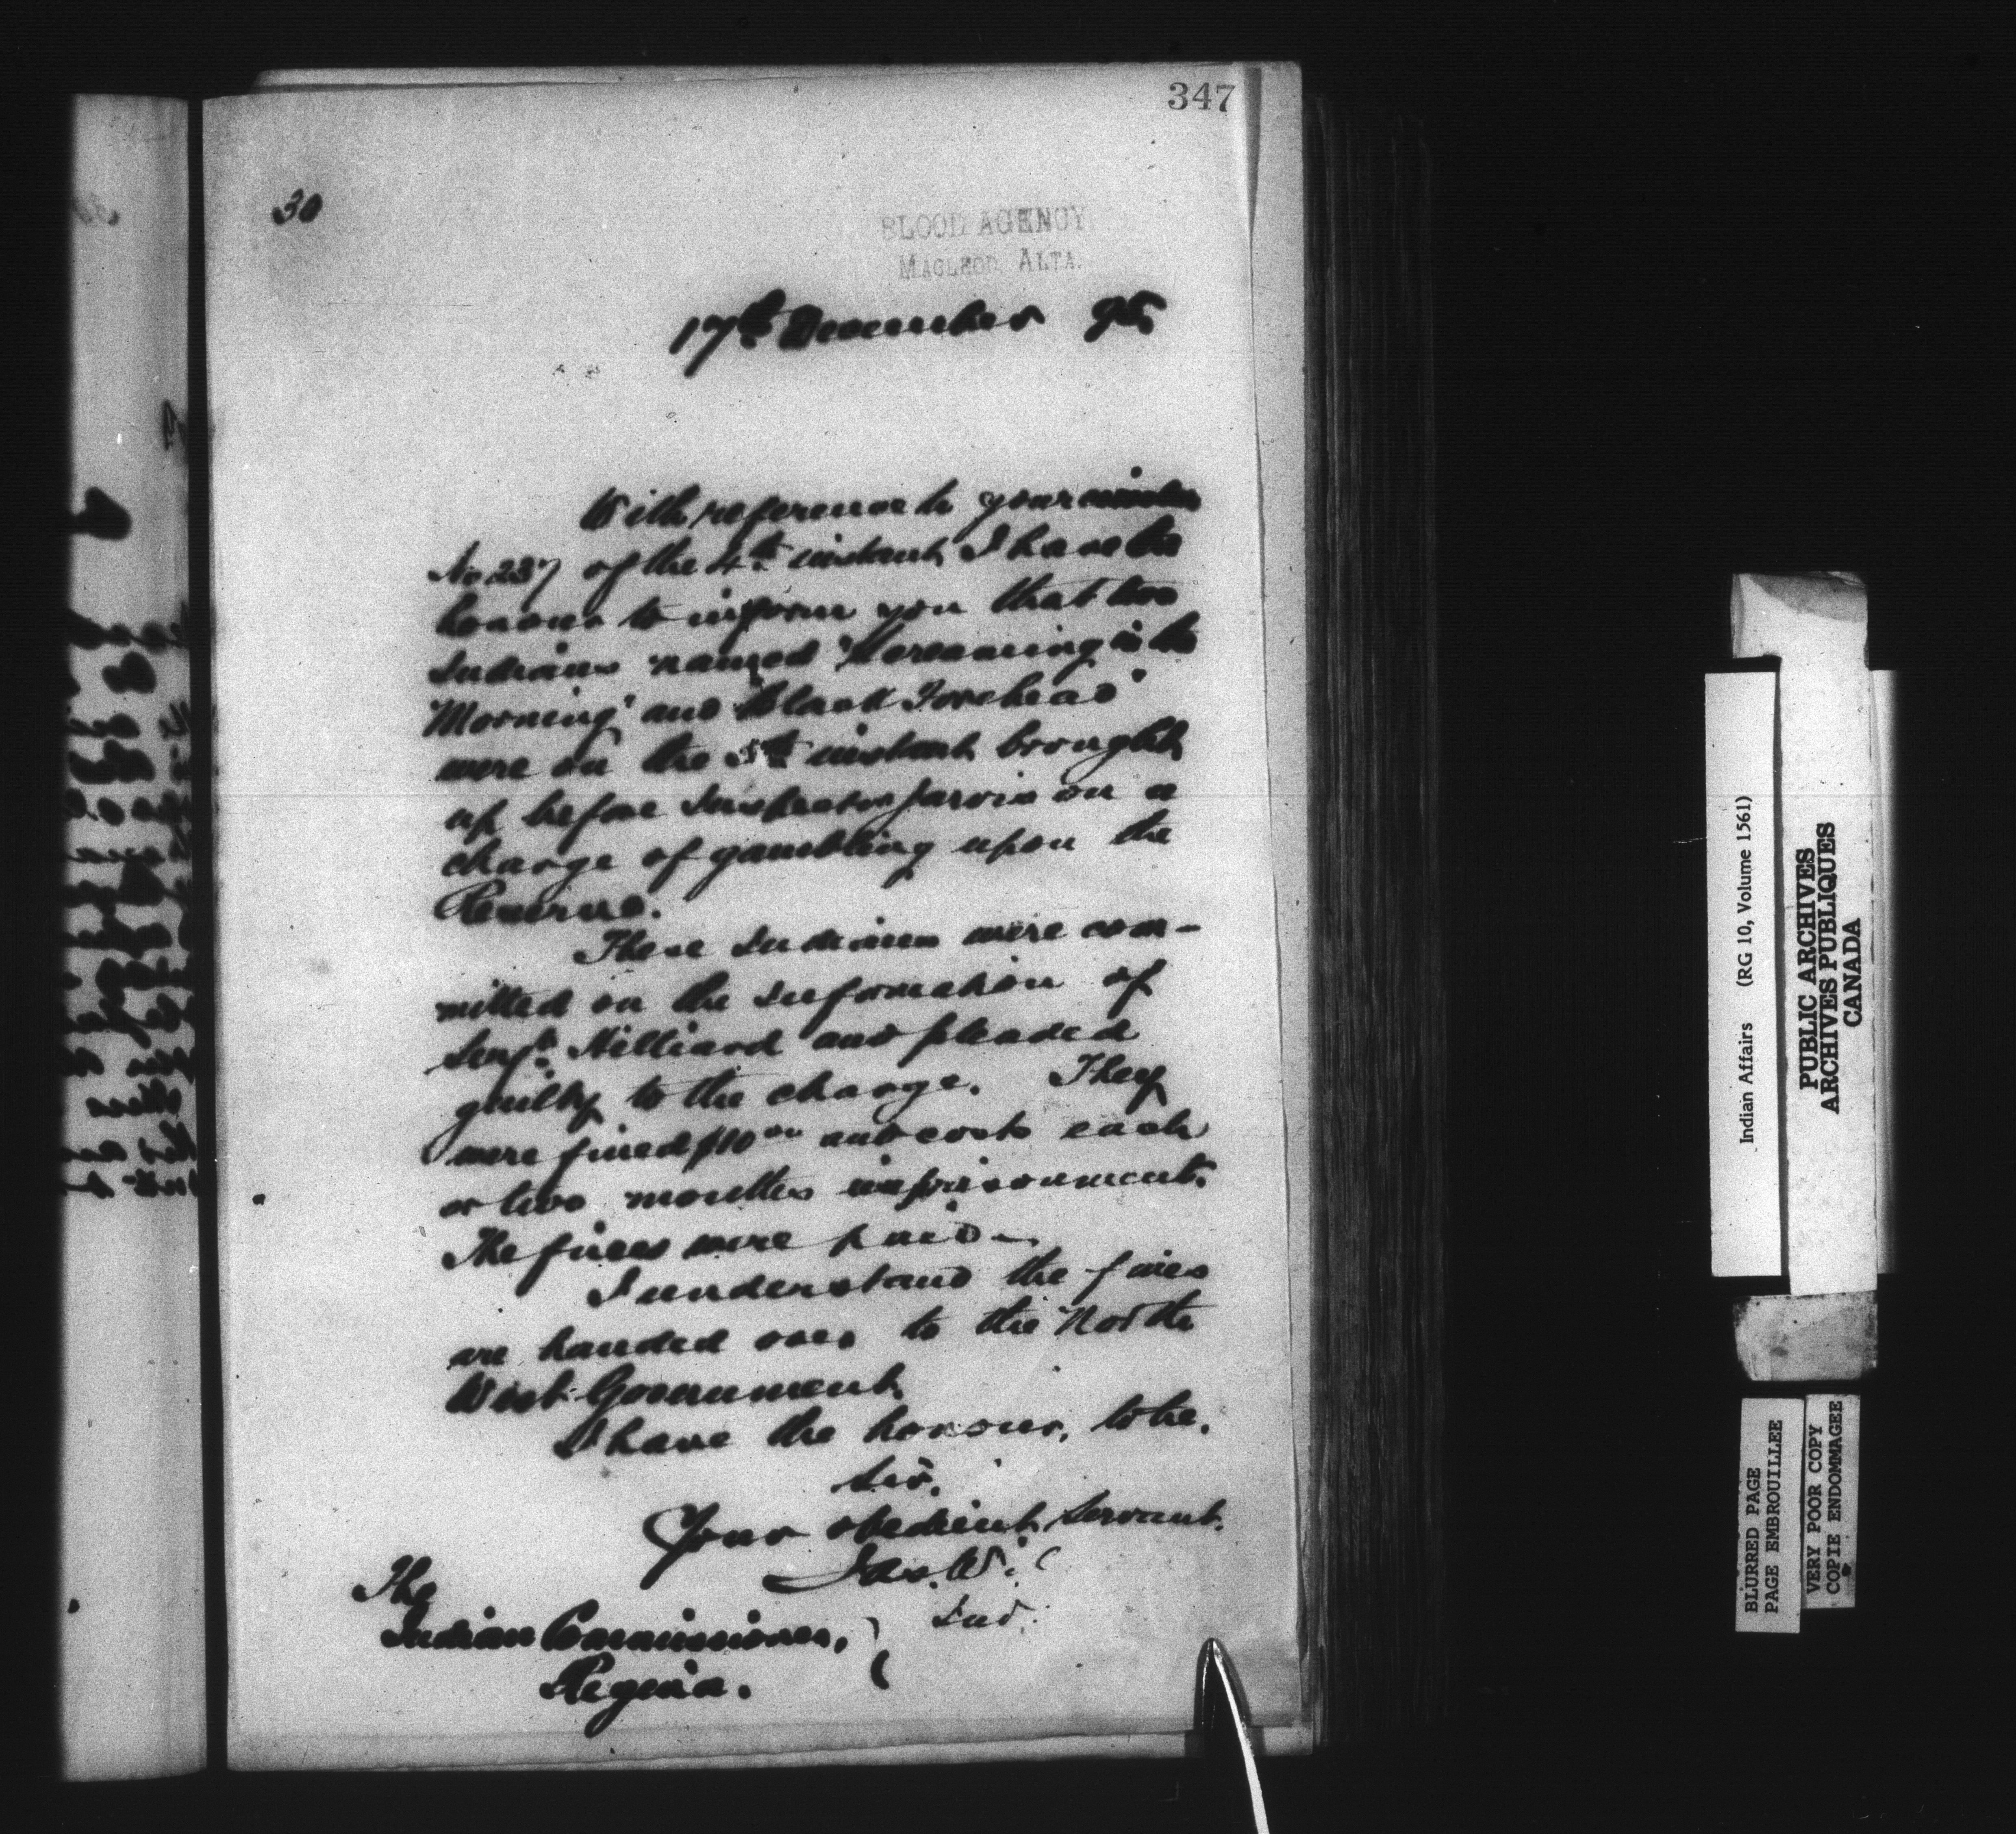 347
30
BLOOD AGENCY
MACLEOD, ALTA.
17th December 95
With reference to your
No 237 of the 4th instant, I have the
honour to inform you that two
Indians named "Screaming in the
Morning" and "Black Forehead"
were on the 5th instant brought
up before Inspector Jarvis on a
charge of gambling upon the
Reserve.
These Indians were com-
mitted on the information of
Sergt. Hilliard and pleaded
guilty to the charge. They
were fined $10 00 and costs each
or two months imprisonment.
The fines were paid -
I understand the fines
are handed over to the North
West Government.
I have the honour, to be,
Sir,
Your obedient Servant.
Jas. W
Ind.
The
Indian Commissioner,
Regina.
Indian Affairs (RG 10, Volume 1561)
PUBLIC ARCHIVES
ARCHIVES PUBLIQUES
CANADA
BLURRED PAGE
PAGE EMBROUILLEE
VERY POOR COPY
COPIE ENDOMMAGEE